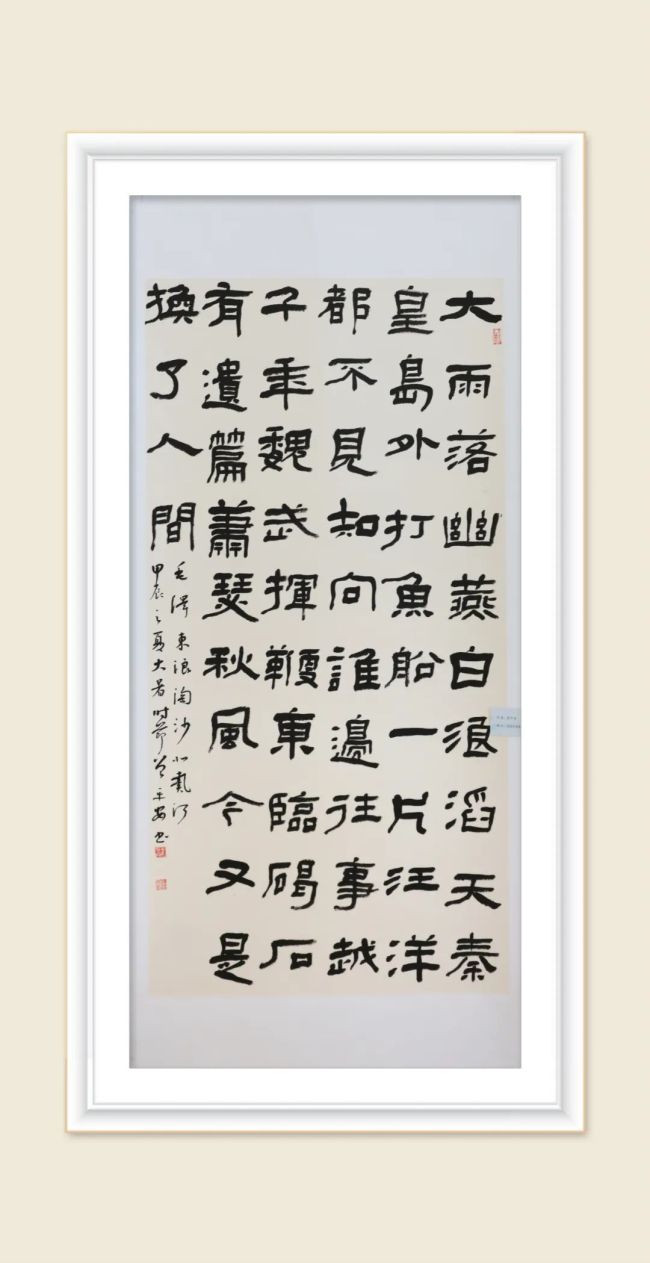 大雨落幽燕白浪滔天秦
皇島外打魚船一片汪洋
都不見知向誰邊往事越
千年魏武揮鞭東臨碣石
有遺篇蕭瑟秋風今又是
換了人間
毛澤東浪淘沙北戴河
甲辰之夏大暑时節書